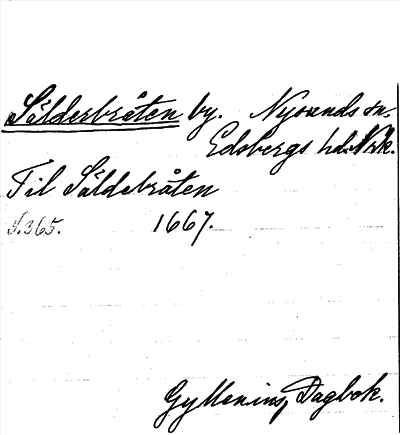 Sålderbråten by. Nysunds sn.
Edsbergs hd. Nrk.
Til Såldebråten
S. 365. 1667.
Gyllenius, Dagbok.